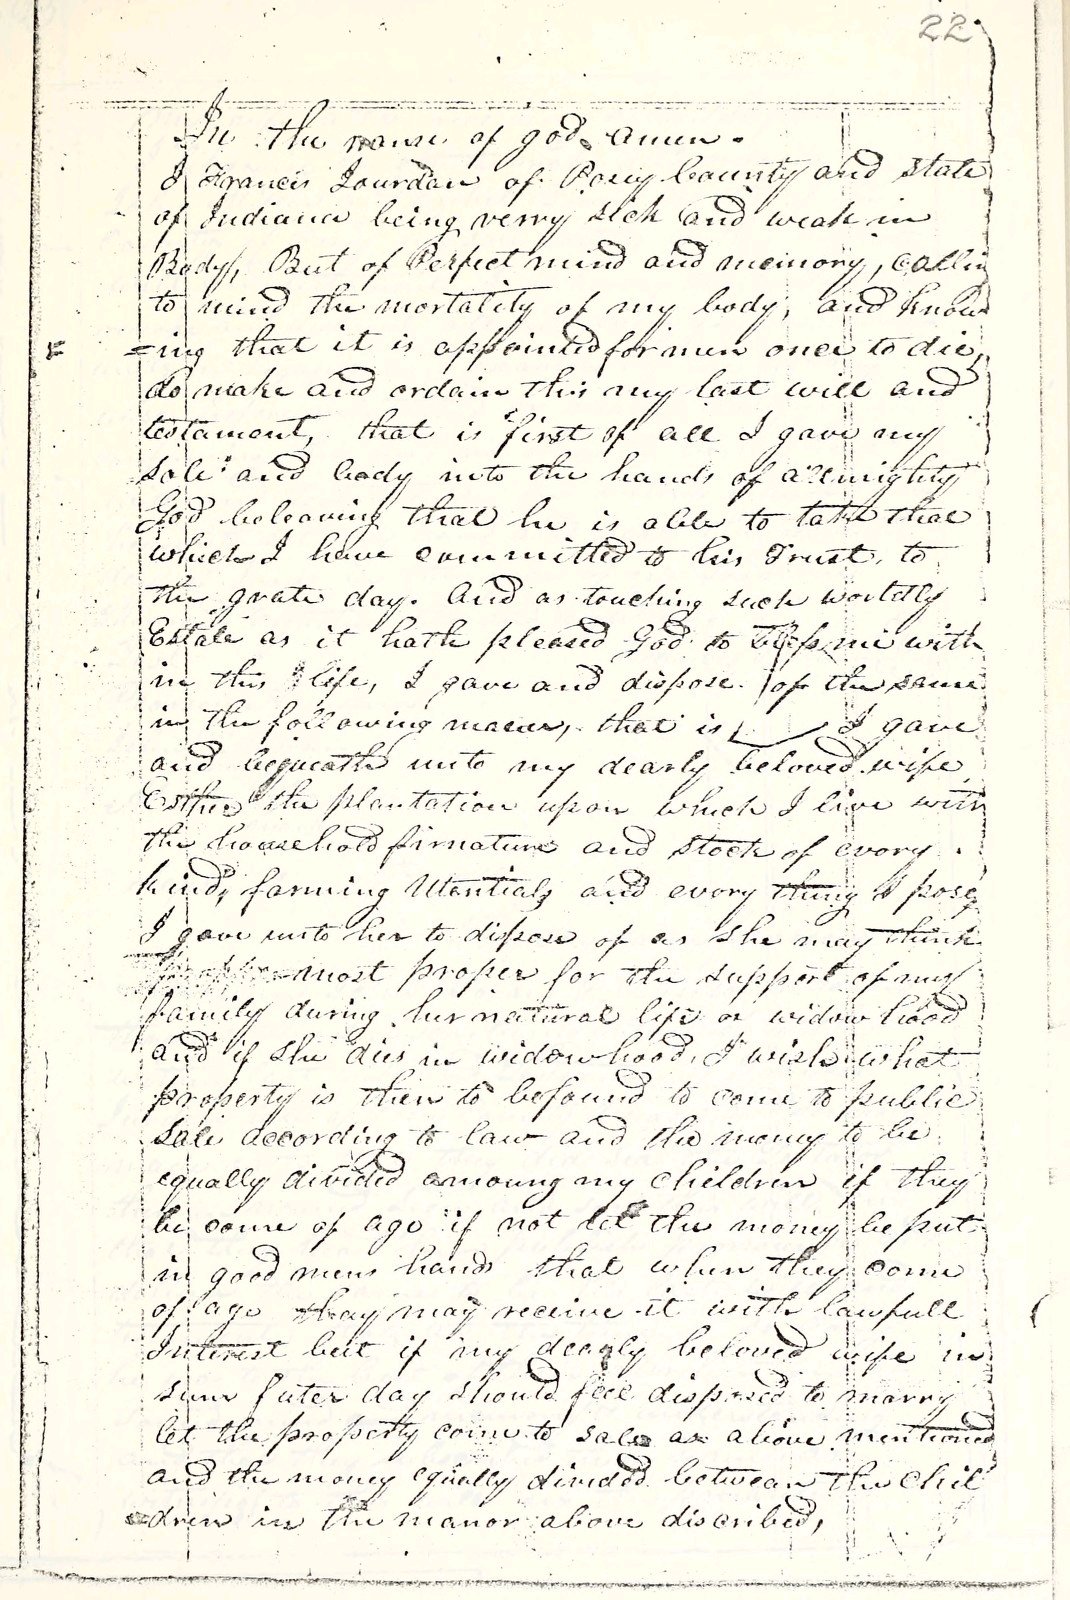 22
In the name of god amen.
I Francis Jourdan of Posey County and State
of Indiana being verry sick and weak in
Body, But of Perfect mind and memory, callin
to mind the mortality of my body, and know
=ing that it is appointed for men once to die,
do make and ordain this my last will and
testament, that is first of all I gave my
sole and body into the hands of allmighty
God beleaving that he is able to take that
which I have committed to his Trust, to
the grate day. And as touching such worldly
Estate as it hath pleased God to bless me with
in this life, I gave and dispose of the same
in the following maner, that is I gave
and bequeath unto my dearly beloved wife
Esther the plantation upon which I live with
the household firnature and stock of evory
kind, farming Utentials and evory thing I poses
I gave unto her to dispose of as she may think
most proper for the support of my
family during her natural life or widow hood
and if she dies in widowhood, I wish what
property is then to be found to come to public
Sale according to law and the money to be
equally divided amoung my children if they
be come of age if not let the money be put
in good mens hands that when they come
of age thay may receive it with lawfull
Interest but if my dearly beloved wife in
sum futer day should feel disposed to marry
let the property come to sale as above mentioned
and the money equally divided between the chil
=dren in the manor above discribed,